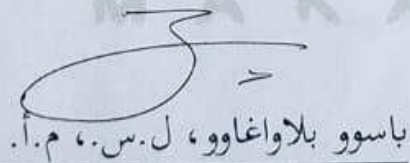 باسوو بلاواغاوو، ل.س.، م.أ.